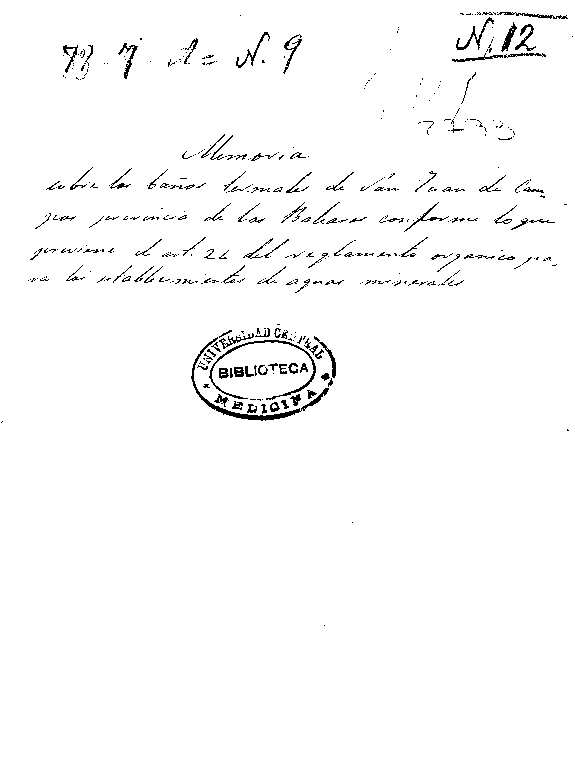 73 - 7 - A = N. 9
N. 12
3733
Memoria
sobre los baños termales de San Juan de Cam-
pos provincia de las Baleares conforme lo que
previene el art. 24 del reglamento organico pa-
ra los establecimientos de aguas minerales
UNIVERSIDAD CENTRAL
BIBLIOTECA
MEDICINA